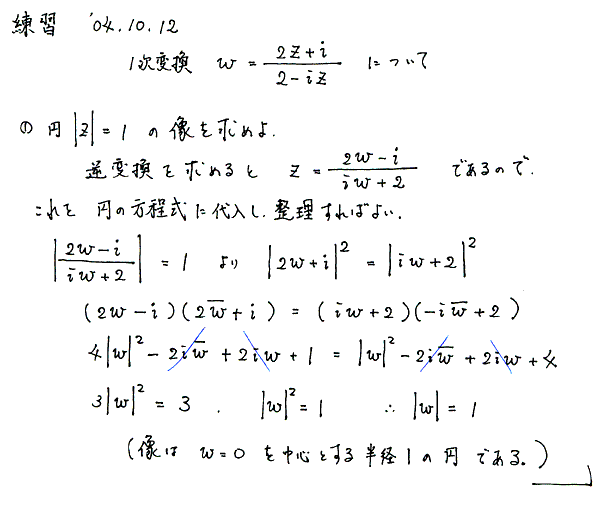 練習 '04.10.12
1次変換 w = (2z+i)/(2-iz) について
① 円 |z| = 1 の像を求めよ.
逆変換を求めると z = (2w-i)/(iw+2) であるので.
これを 円の方程式に代入し.整理すればよい.
|(2w-i)/(iw+2)| = 1 より |2w+i|² = |iw+2|²
(2w-i)(2w̅+i) = (iw+2)(-iw̅+2)
4|w|² - 2iw̅ + 2iw + 1 = |w|² - 2iw̅ + 2iw + 4
3|w|² = 3 . |w|² = 1 ∴ |w| = 1
(像は w=0 を中心とする半径1の円である。)